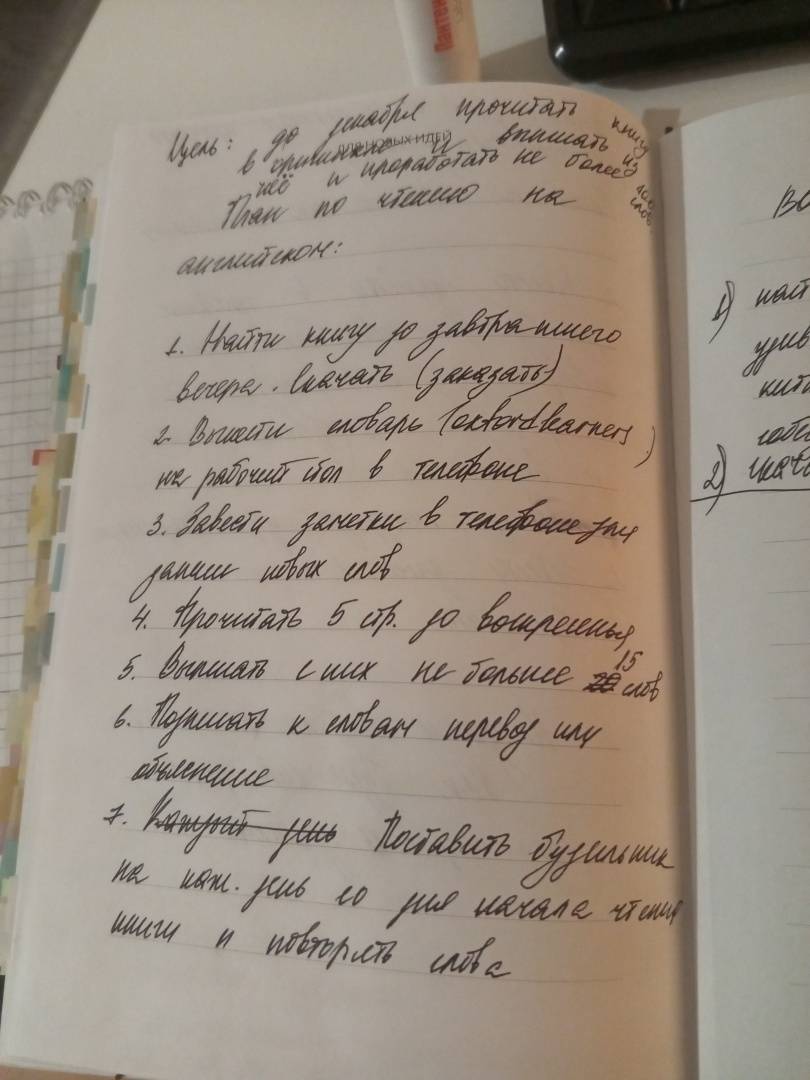 Цель: до декабря прочитать книгу
в оригинале и выписать из
ДЛЯ НОВЫХ ИДЕЙ
неё и проработать не более 100 слов.
План по чтению на
английском:
1. Найти книгу до завтрашнего
вечера. Скачать (заказать)
2. Вынести словарь (oxford learners)
на рабочий стол в телефоне
3. Завести заметки в телефоне для
записи новых слов
4. Прочитать 5 стр. до воскресенья
5. Выписать с них не больше 20 15 слов
6. Подписать к словам перевод или
объяснение
7. Каждый день Поставить будильник
на каж. день со дня начала чтения
книги и повторять слова
1)
2)